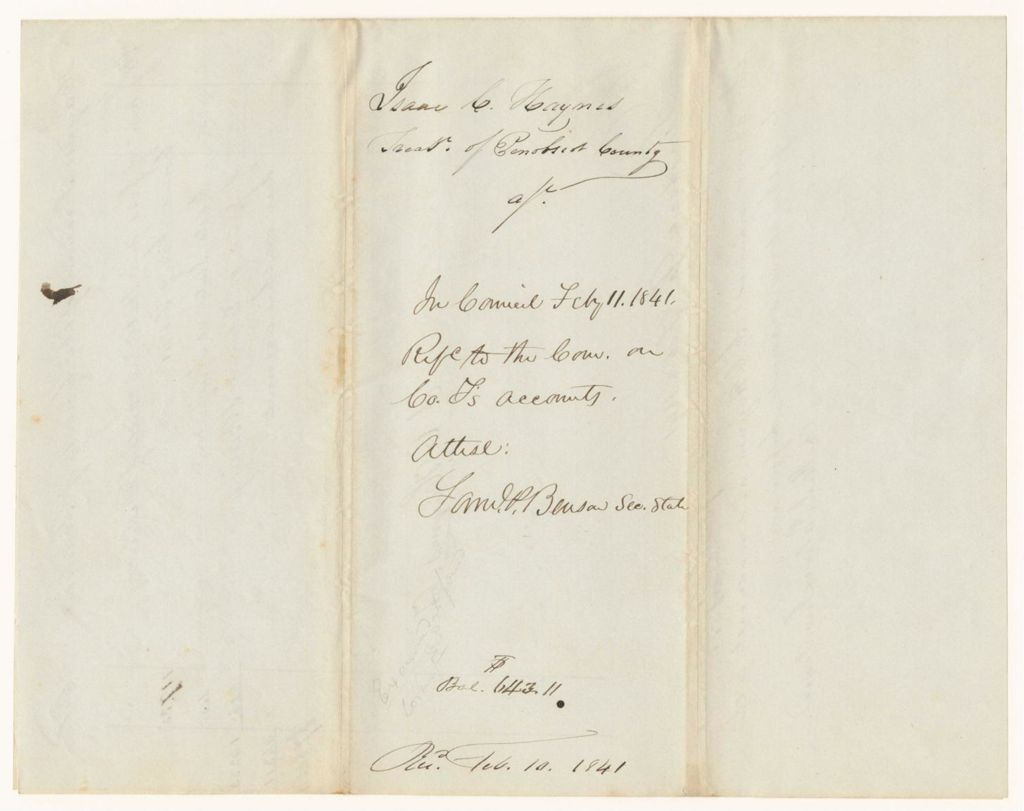 Isaac C. Haynes
Treasr. of Penobscot County
a/c.
In Council Feby 11. 1841.
Refd to the Com. on
Co. T's accounts.
Attest:
Saml. P. Benson Sec. State
$
Bal. 643.11
Recd. Feb. 10. 1841